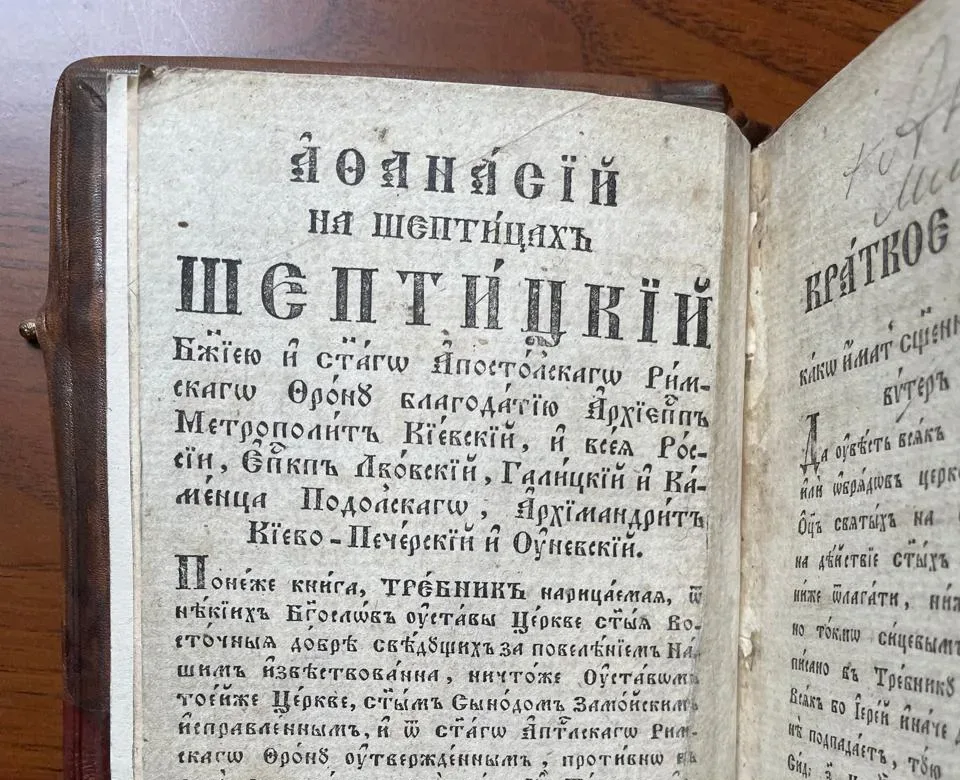 А҆ѳана́сїй
на Шепти́цахъ
Шепти́цкїй
Бж҃їею и҆ ст҃а́гѡ А҆посто́лскагѡ Ри́м-
скагѡ Ѳро́нꙋ благода́тїю А҆рхїеп҃пъ
Метрополи́тъ Кі́евскїй, и҆ все́ѧ Рѡ́с-
сїи, Е҆п҃кпъ Лво́вскїй, Гали́цкїй и҆ Ка-
ме́нца Подо́лскагѡ, А҆рхїмандри́тъ
Кїево-Пече́рскїй и҆ Оу҆не́вскїй.
Поне́же кни́га, тре́бникъ нарица́емаѧ, ѿ
нѣ́кїихъ Бг҃осло́въ оу҆ста́вы Це́ркве ст҃ы́ѧ Во-
сто́чныѧ до́брѣ свѣ́дꙋщихъ за повелѣ́нїемъ На-
шимъ и҆звѣ́ствованна, ничто́же Оу҆ста́вѡмъ
тоѐйже Це́ркве, ст҃ы́мъ Сѵно́домъ Замо́йскимъ
и҆спра́вленнымъ, и҆ ѿ ст҃а́гѡ А҆пⷭ҇тлскагѡ Ри́м-
скагѡ Ѳро́нꙋ оу҆твержде́ннымъ, проти́внѡ
Кра́ткое
ка́кѡ и҆́мат сщ҃е́нн
вну́тер
Да оу҆вѣ́сть всѧ́къ
и҆лѝ ѻ҆брѧ́дѡвъ церко
Оц҃ъ свѧты́хъ на
на дѣ́йствїе ст҃ы́хъ
ни́же ѿлага́ти, ни́ж
но то́кмѡ си́цевымъ
пи́сано въ Тре́бникꙋ
Всѧ́къ бо І҆ере́й и҆на́че
подпада́етъ, тꙋ́ю